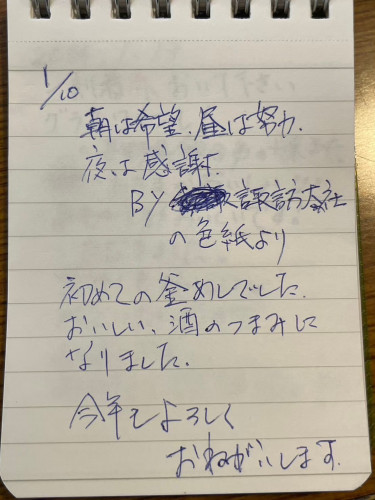 1/10
朝は希望、昼は努力、
夜は感謝。
BY 諏訪大社
の色紙より
初めての釜めしでした。
おいしい、酒のつまみに
なりました。
今年もよろしく
おねがいします。